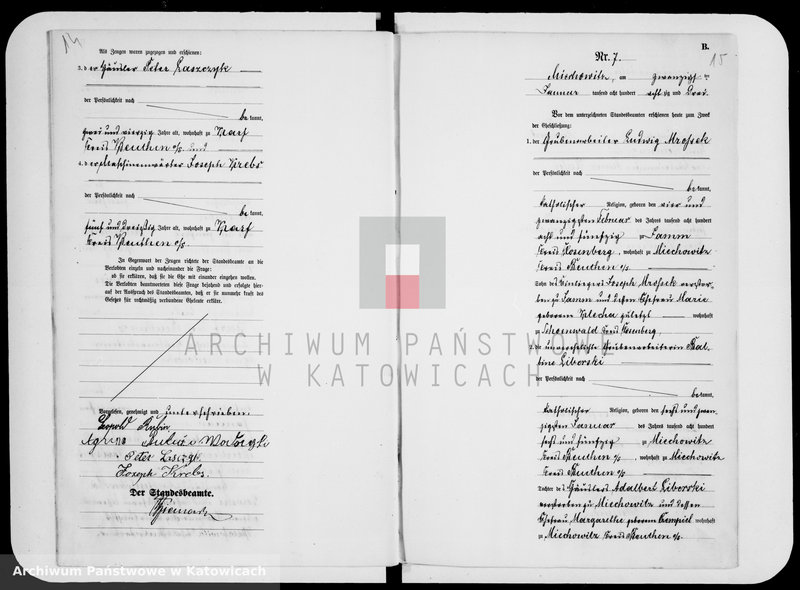 14
Als Zeugen waren zugezogen und erschienen:
3. der Häusler Peter
der Persönlichkeit nach
be kannt,
zwei und vierzig Jahre alt, wohnhaft zu Karf
Kreis Beuthen o/s. und
4. der Maschinenwärter Joseph Krebs
der Persönlichkeit nach
be kannt,
fünf und dreißig Jahre alt, wohnhaft zu Karf
Kreis Beuthen o/s.
In Gegenwart der Zeugen richtete der Standesbeamte an die
Verlobten einzeln und nacheinander die Frage:
ob sie erklären, daß sie die Ehe mit einander eingehen wollen.
Die Verlobten beantworteten diese Frage bejahend und erfolgte hier-
auf der Ausspruch des Standesbeamten, daß er sie nunmehr kraft des
Gesetzes für rechtmäßig verbundene Eheleute erkläre.
Vorgelesen, genehmigt und unterschrieben.
Leopold
Peter
Joseph Krebs.
Der Standesbeamte.
B.
15
Nr. 7.
Miechowitz, am zwanzigsten
Januar tausend acht hundert achtzig und drei.
Vor dem unterzeichneten Standesbeamten erschienen heute zum Zweck
der Eheschließung:
1. der Grubenarbeiter Ludwig Mrossek
der Persönlichkeit nach
be kannt,
katholischer Religion, geboren den vier und
zwanzigsten Februar des Jahres tausend acht hundert
acht und fünfzig zu Jamm
Kreis Rosenberg, wohnhaft zu Miechowitz
Kreis Beuthen o/s.
Sohn des Joseph Mrossek verstor-
ben zu Jamm und dessen Ehefrau Marie
geborenen Klecha zuletzt wohnhaft
zu Schoenwald Kreis Rosenberg,
2. die unverehelichte Grubenarbeiterin Bal-
bine Liborski
der Persönlichkeit nach
be kannt,
katholischer Religion, geboren den sechs und zwan-
zigsten Januar des Jahres tausend acht hundert
sechs und fünfzig zu Miechowitz
Kreis Beuthen o/s, wohnhaft zu Miechowitz
Kreis Beuthen o/s
Tochter des Häuslers Adalbert Liborski
verstorben zu Miechowitz und dessen
Ehefrau Margarethe geborenen wohnhaft
zu Miechowitz Kreis Beuthen o/s.
ARCHIWUM PAŃSTWOWE
W KATOWICACH
Archiwum Państwowe w Katowicach